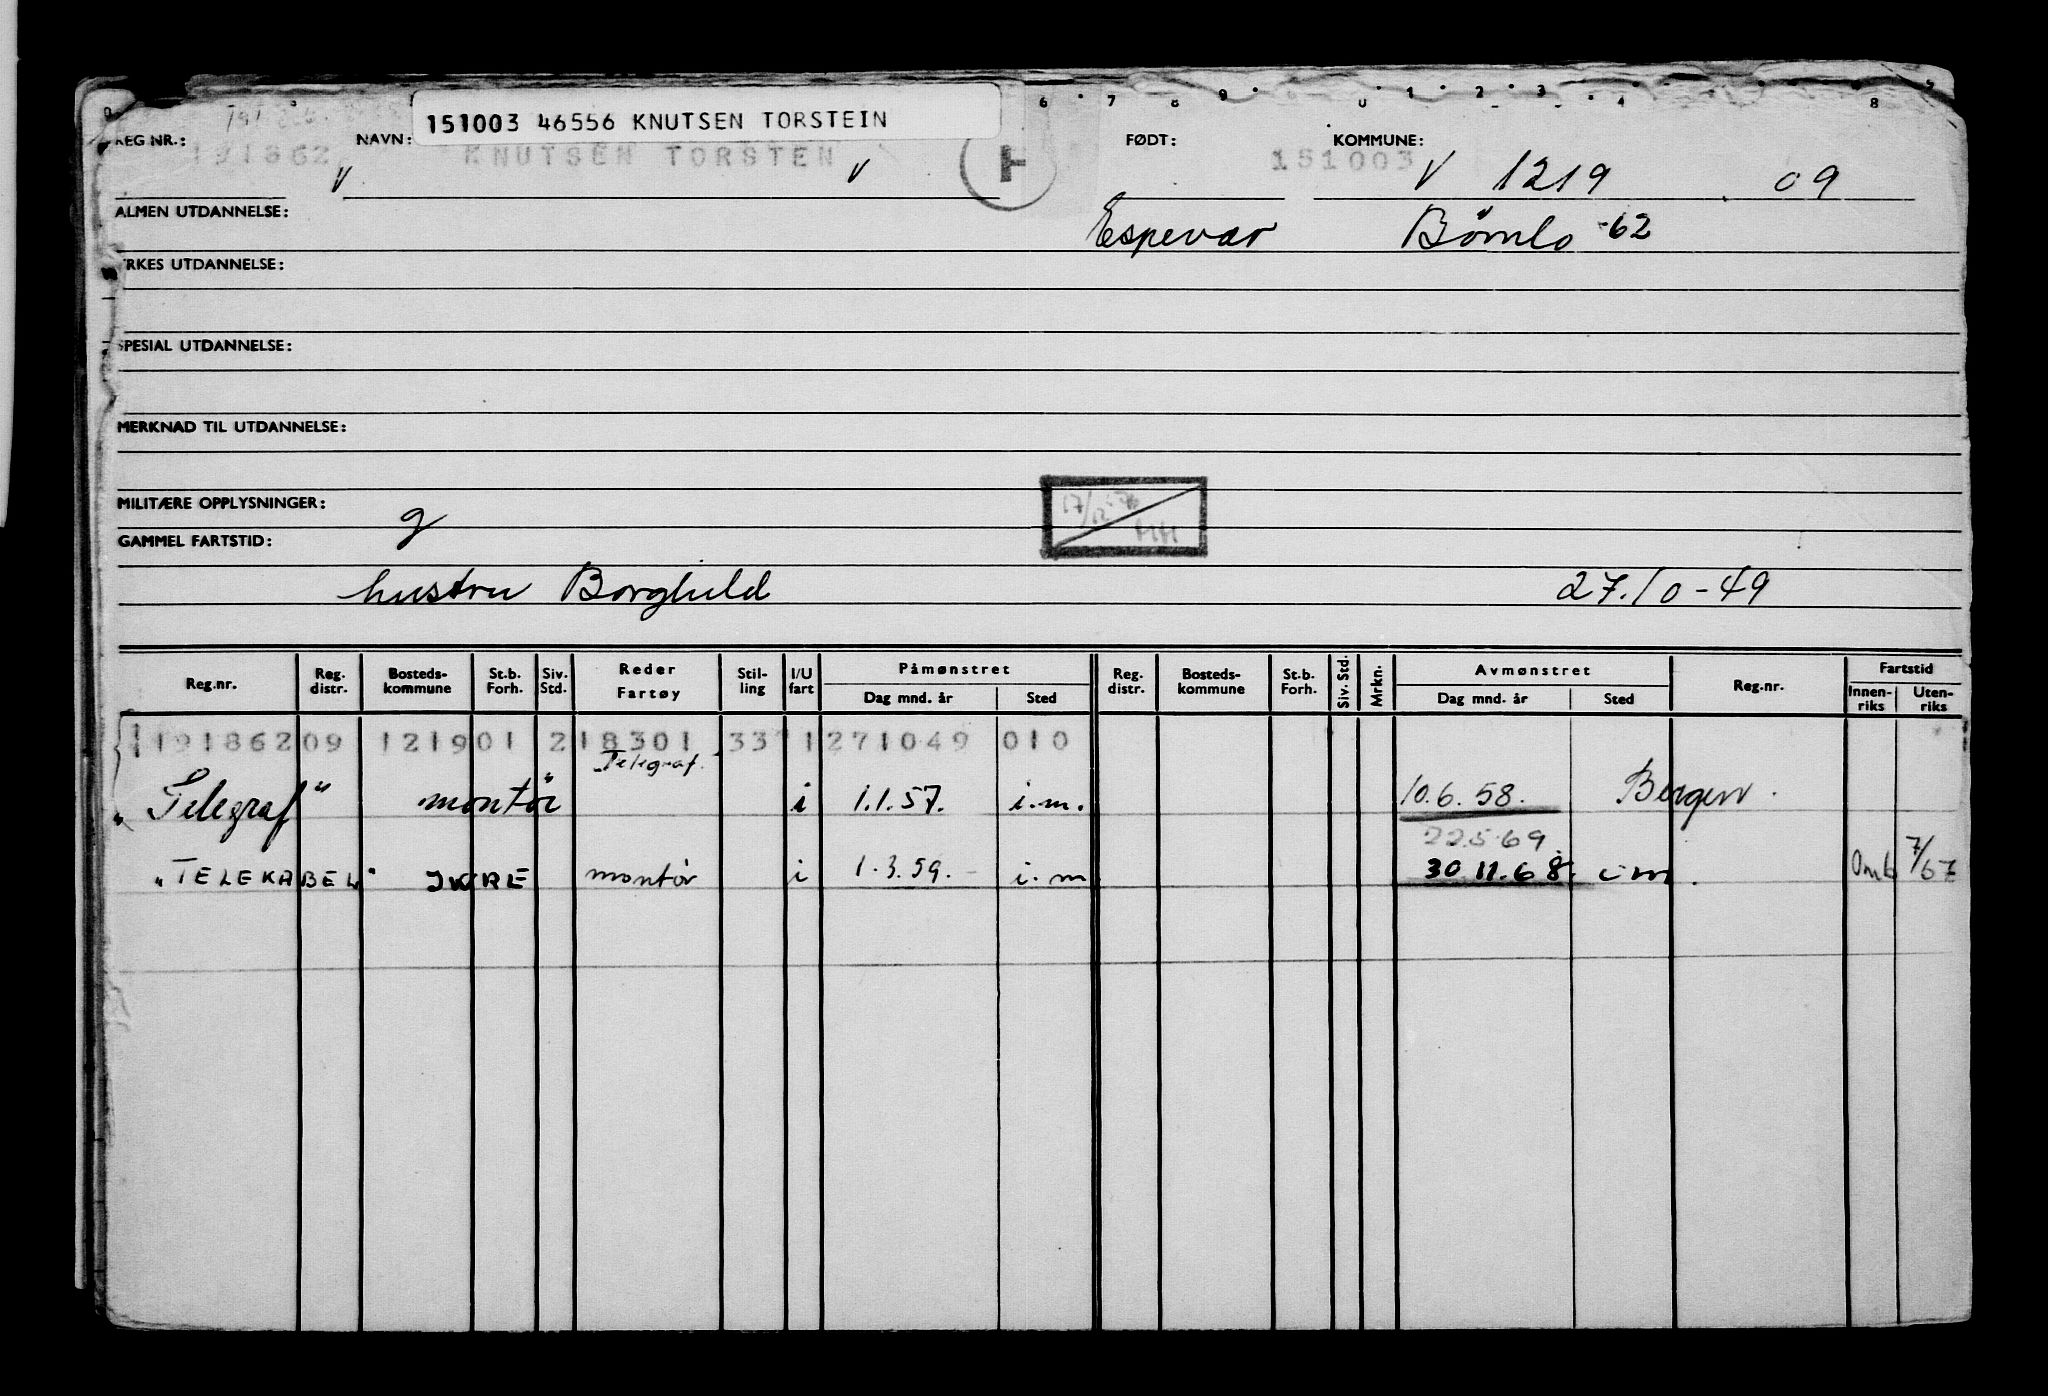 6 7 8 9 0 1 2 3 4 8 9
151003 46556 KNUTSEN TORSTEIN
REG NR.: NAVN: FØDT: KOMMUNE:
191862 KNUTSEN TORSTEN H 151003
V 1219 09
ALMEN UTDANNELSE: Espevær Bømlo -62
YRKES UTDANNELSE:
SPESIAL UTDANNELSE:
MERKNAD TIL UTDANNELSE:
MILITÆRE OPPLYSNINGER: g
GAMMEL FARTSTID:
hustru Borghild 27.10-49
Reg.nr. Reg. distr. Bosteds-kommune St.b. Forh. Siv. Std. Reder Fartøy Stil-ling I/U fart Påmønstret Dag mnd. år Sted Reg. distr. Bosteds-kommune St.b. Forh. Siv. Std. Mrkn. Avmønstret Dag mnd. år Sted Reg.nr. Fartstid Innen-riks Uten-riks
191862 09 1219 01 2 18301 33 1 271049 010
Telegraf.
"Telegraf" montør i 1.1.57. i.m. 10.6.58. Bergen.
22.5.69
"TELEKABEL" IKKE montør i 1.3.59. i.m 30 11.68. i m. Omb 7/67